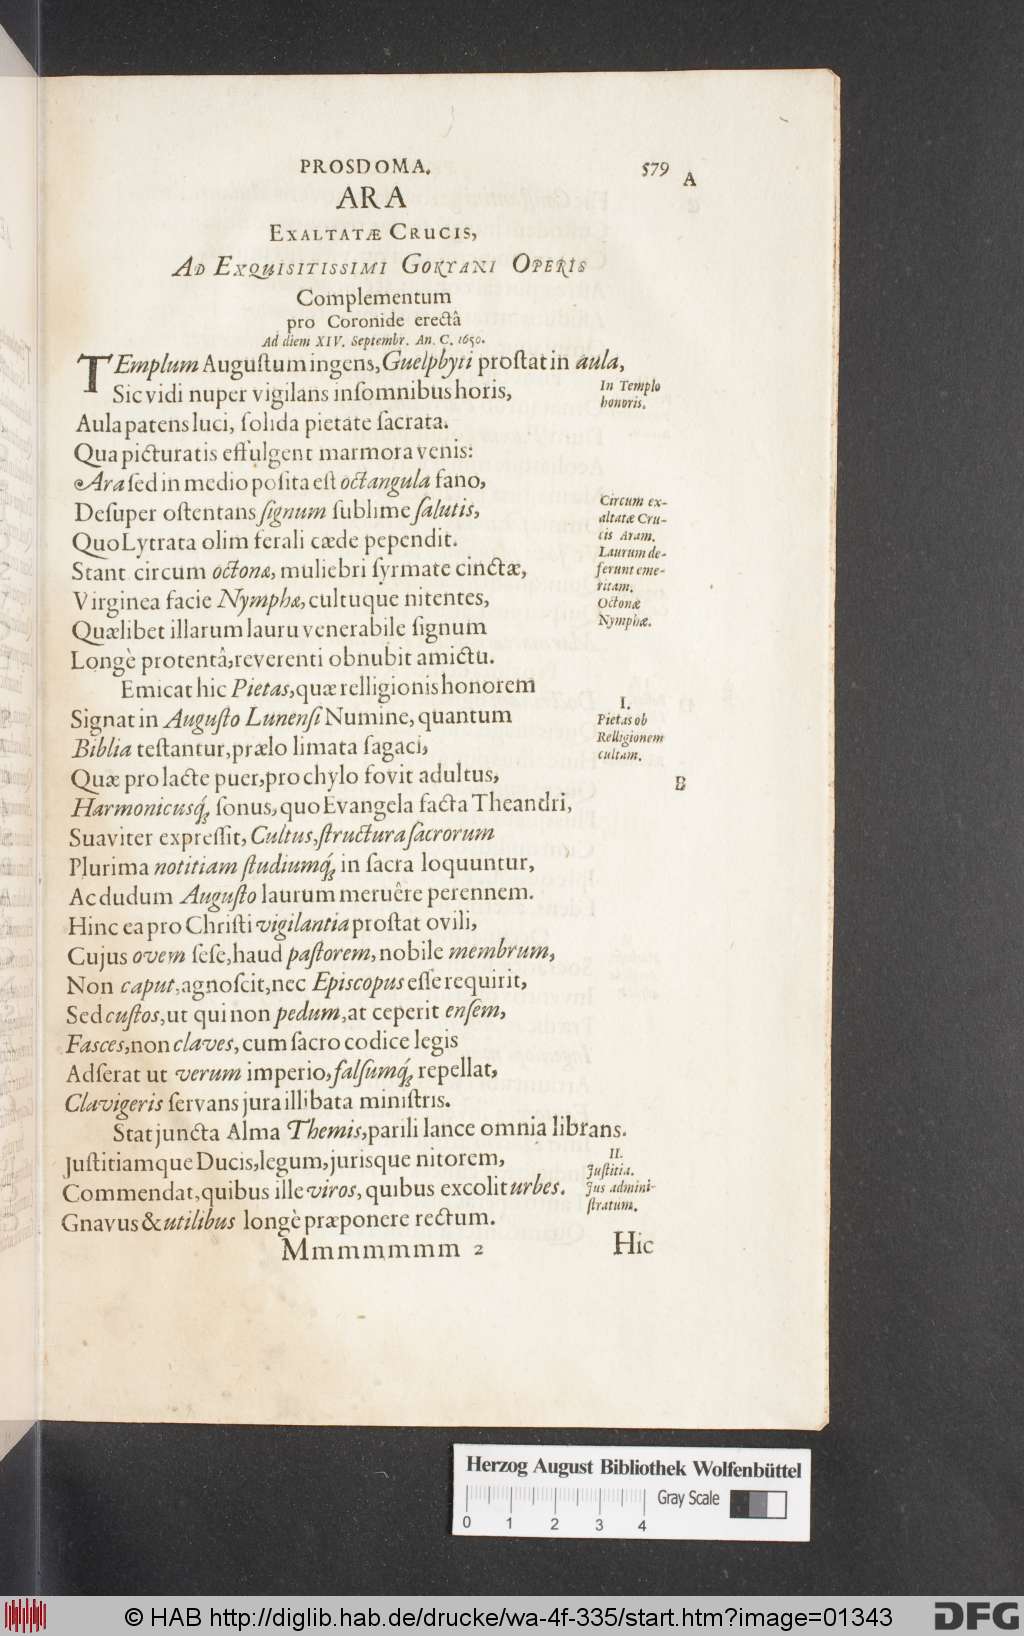 PROSDOMA. 579 A
ARA
EXALTATÆ CRUCIS,
AD EXQUISITISSIMI GORTANI OPERIS
Complementum
pro Coronide erectâ
Ad diem XIV. Septembr. An. C. 1650.
TEmplum Auguſtum ingens, Guelphyti proſtat in aula,
Sic vidi nuper vigilans inſomnibus horis,
In Templo
honoris.
Aula patens luci, ſolida pietate ſacrata.
Qua picturatis effulgent marmora venis:
Ara ſed in medio poſita eſt octangula fano,
Deſuper oſtentans ſignum ſublime ſalutis,
Quo Lytrata olim ferali cæde pependit.
Stant circum octonæ, muliebri ſyrmate cinctæ,
Virginea facie Nymphæ, cultuque nitentes,
Circum ex-
altatæ Cru-
cis Aram.
Laurum de-
ferunt eme-
ritam.
Octonæ
Nymphæ.
Quælibet illarum lauru venerabile ſignum
Longè protentâ, reverenti obnubit amictu.
Emicat hic Pietas, quæ relligionis honorem
Signat in Auguſto Lunenſi Numine, quantum
Biblia teſtantur, prælo limata ſagaci,
I.
Pietas ob
Relligionem
cultam.
Quæ pro lacte puer, pro chylo fovit adultus,
B
Harmonicusq́; ſonus, quo Evangela facta Theandri,
Suaviter expreſſit, Cultus, ſtructura ſacrorum
Plurima notitiam ſtudiumq́; in ſacra loquuntur,
Ac dudum Auguſto laurum meruêre perennem.
Hinc ea pro Chriſti vigilantia proſtat ovili,
Cujus ovem ſeſe, haud paſtorem, nobile membrum,
Non caput, agnoſcit, nec Epiſcopus eſſe requirit,
Sed cuſtos, ut qui non pedum, at ceperit enſem,
Faſces, non claves, cum ſacro codice legis
Adſerat ut verum imperio, falſumq́; repellat,
Clavigeris ſervans jura illibata miniſtris.
Stat juncta Alma Themis, parili lance omnia librans.
Juſtitiamque Ducis, legum, jurisque nitorem,
Commendat, quibus ille viros, quibus excolit urbes.
Gnavus & utilibus longè præponere rectum.
II.
Juſtitia.
Jus admini-
ſtratum.
Mmmmmmm 2 Hic
Herzog August Bibliothek Wolfenbüttel
Gray Scale
0 1 2 3 4
© HAB http://diglib.hab.de/drucke/wa-4f-335/start.htm?image=01343
DFG